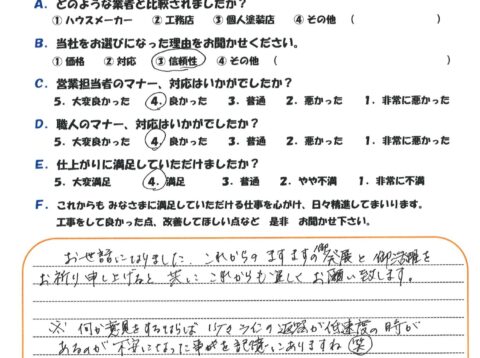 A. どのような業者と比較されましたか?
① ハウスメーカー ② 工務店 ③ 個人塗装店 ④ その他 ( )
B. 当社をお選びになった理由をお聞かせください。
① 価格 ② 対応 ③ 信頼性 ④ その他 ( )
C. 営業担当者のマナー、対応はいかがでしたか?
5. 大変良かった 4. 良かった 3. 普通 2. 悪かった 1. 非常に悪かった
D. 職人のマナー、対応はいかがでしたか?
5. 大変良かった 4. 良かった 3. 普通 2. 悪かった 1. 非常に悪かった
E. 仕上がりに満足していただけましたか?
5. 大変満足 4. 満足 3. 普通 2. やや不満 1. 非常に不満
F. これからも みなさまに満足していただける仕事を心がけ、日々精進してまいります。
工事をして良かった点、改善してほしい点など 是非 お聞かせ下さい。
お世話になりました これからのますますの御発展と御活躍を
お祈り申し上げると共に これからも宜しくお願い致します。
※ 何か意見をするならば ラインの返答が低速度の時が
あるのが 不安になった事を記憶にありますね (笑)